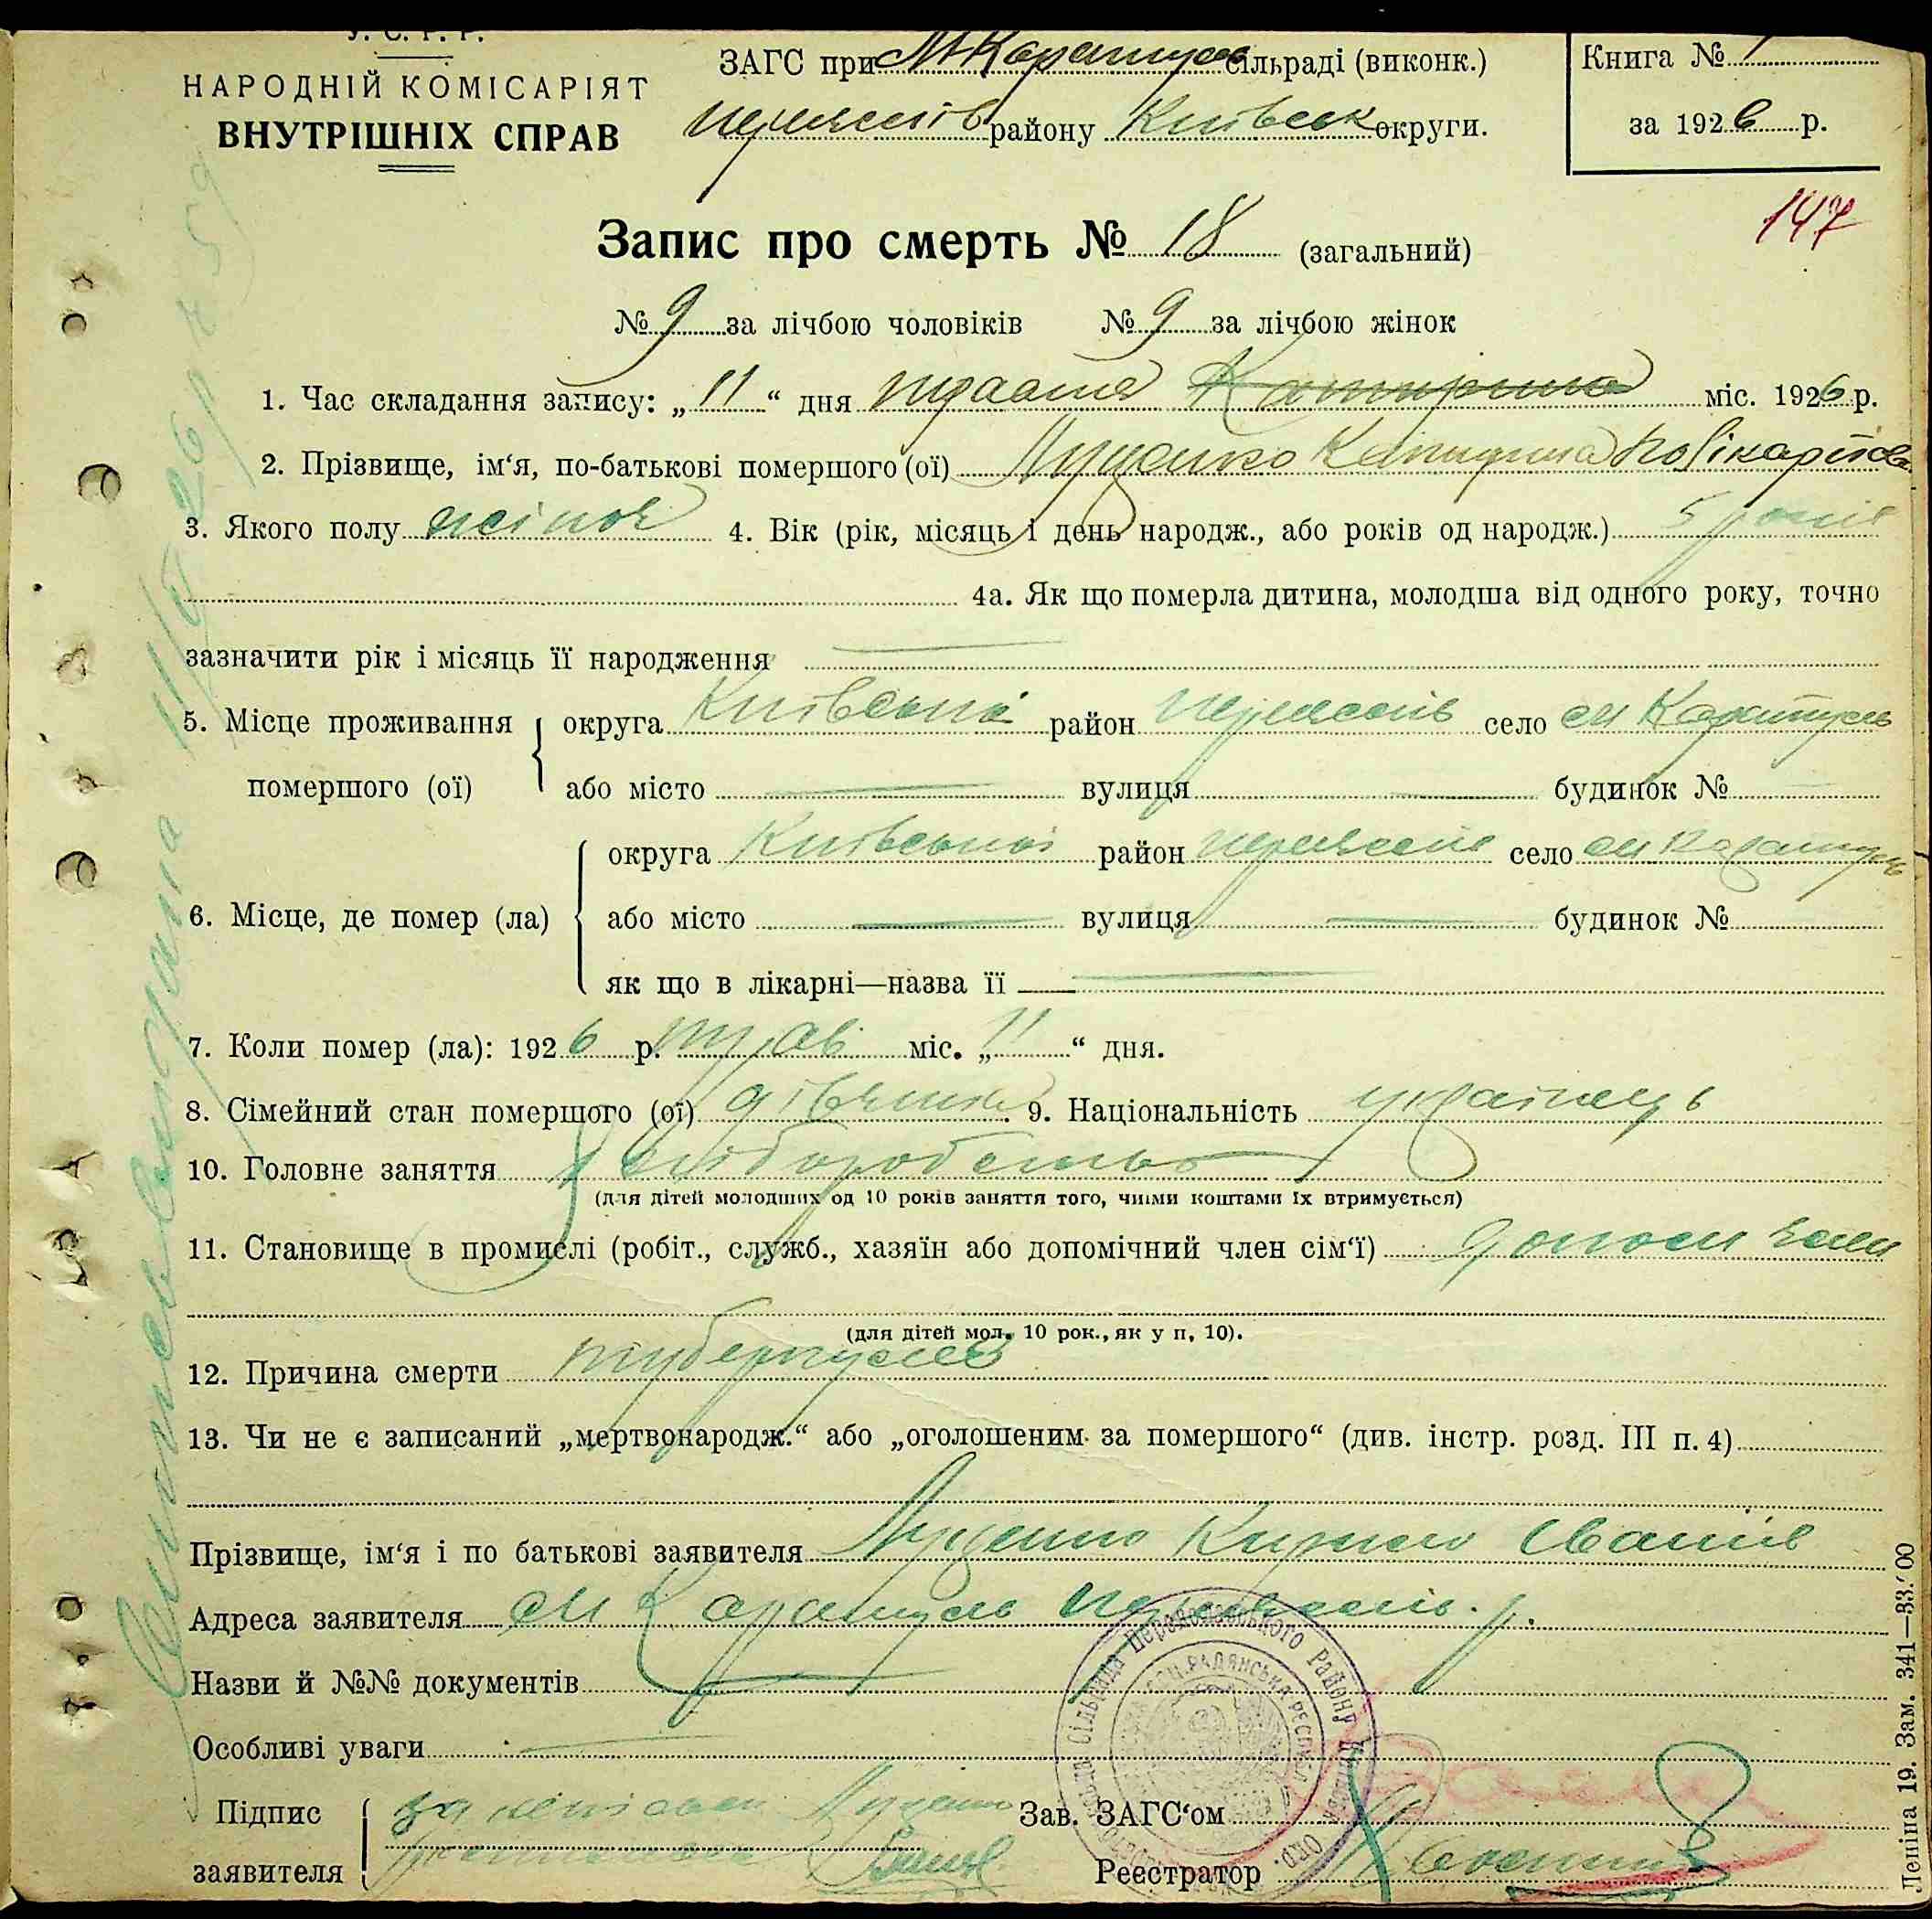 У. С. Р. Р.
НАРОДНІЙ КОМІСАРІЯТ
ВНУТРІШНІХ СПРАВ
ЗАГС при М Каратул сільраді (виконк.)
Переяслів району Київськ округи.
Книга № 1
за 1926 р.
147
Запис про смерть № 18 (загальний)
№ 9 за лічбою чоловіків № 9 за лічбою жінок
1. Час складання запису: „11“ дня травня міс. 1926 р.
2. Прізвище, ім‘я, по-батькові помершого (ої) Луценко
3. Якого полу жіноч 4. Вік (рік, місяць і день народж., або років од народж.) 5 років
4а. Як що померла дитина, молодша від одного року, точно
зазначити рік і місяць її народження
5. Місце проживання помершого (ої) { округа Київська район Переяслів село см Каратуль
або місто вулиця будинок №
6. Місце, де помер (ла) { округа Київська район Переяслів село см Каратуль
або місто вулиця будинок №
як що в лікарні—назва її
7. Коли помер (ла): 1926 р. трав міс. „11“ дня.
8. Сімейний стан помершого (ої) дівчина 9. Національність українець
10. Головне заняття хліборобство
(для дітей молодших од 10 років заняття того, чиїми коштами їх втримується)
11. Становище в промислі (робіт., служб., хазяїн або допомічний член сім‘ї) допом член
(для дітей мол. 10 рок., як у п. 10).
12. Причина смерти туберкульоз
13. Чи не є записаний „мертвонародж.“ або „оголошеним за помершого“ (див. інстр. розд. III п. 4)
Прізвище, ім‘я і по батькові заявителя Луценко Кирило Іванів
Адреса заявителя см Каратуль Переяслів. р.
Назви й №№ документів
Особливі уваги
Підпис заявителя { Луценко
Зав. ЗАГС‘ом
Реєстратор
Леніна 19. Зам. 341—33.'00